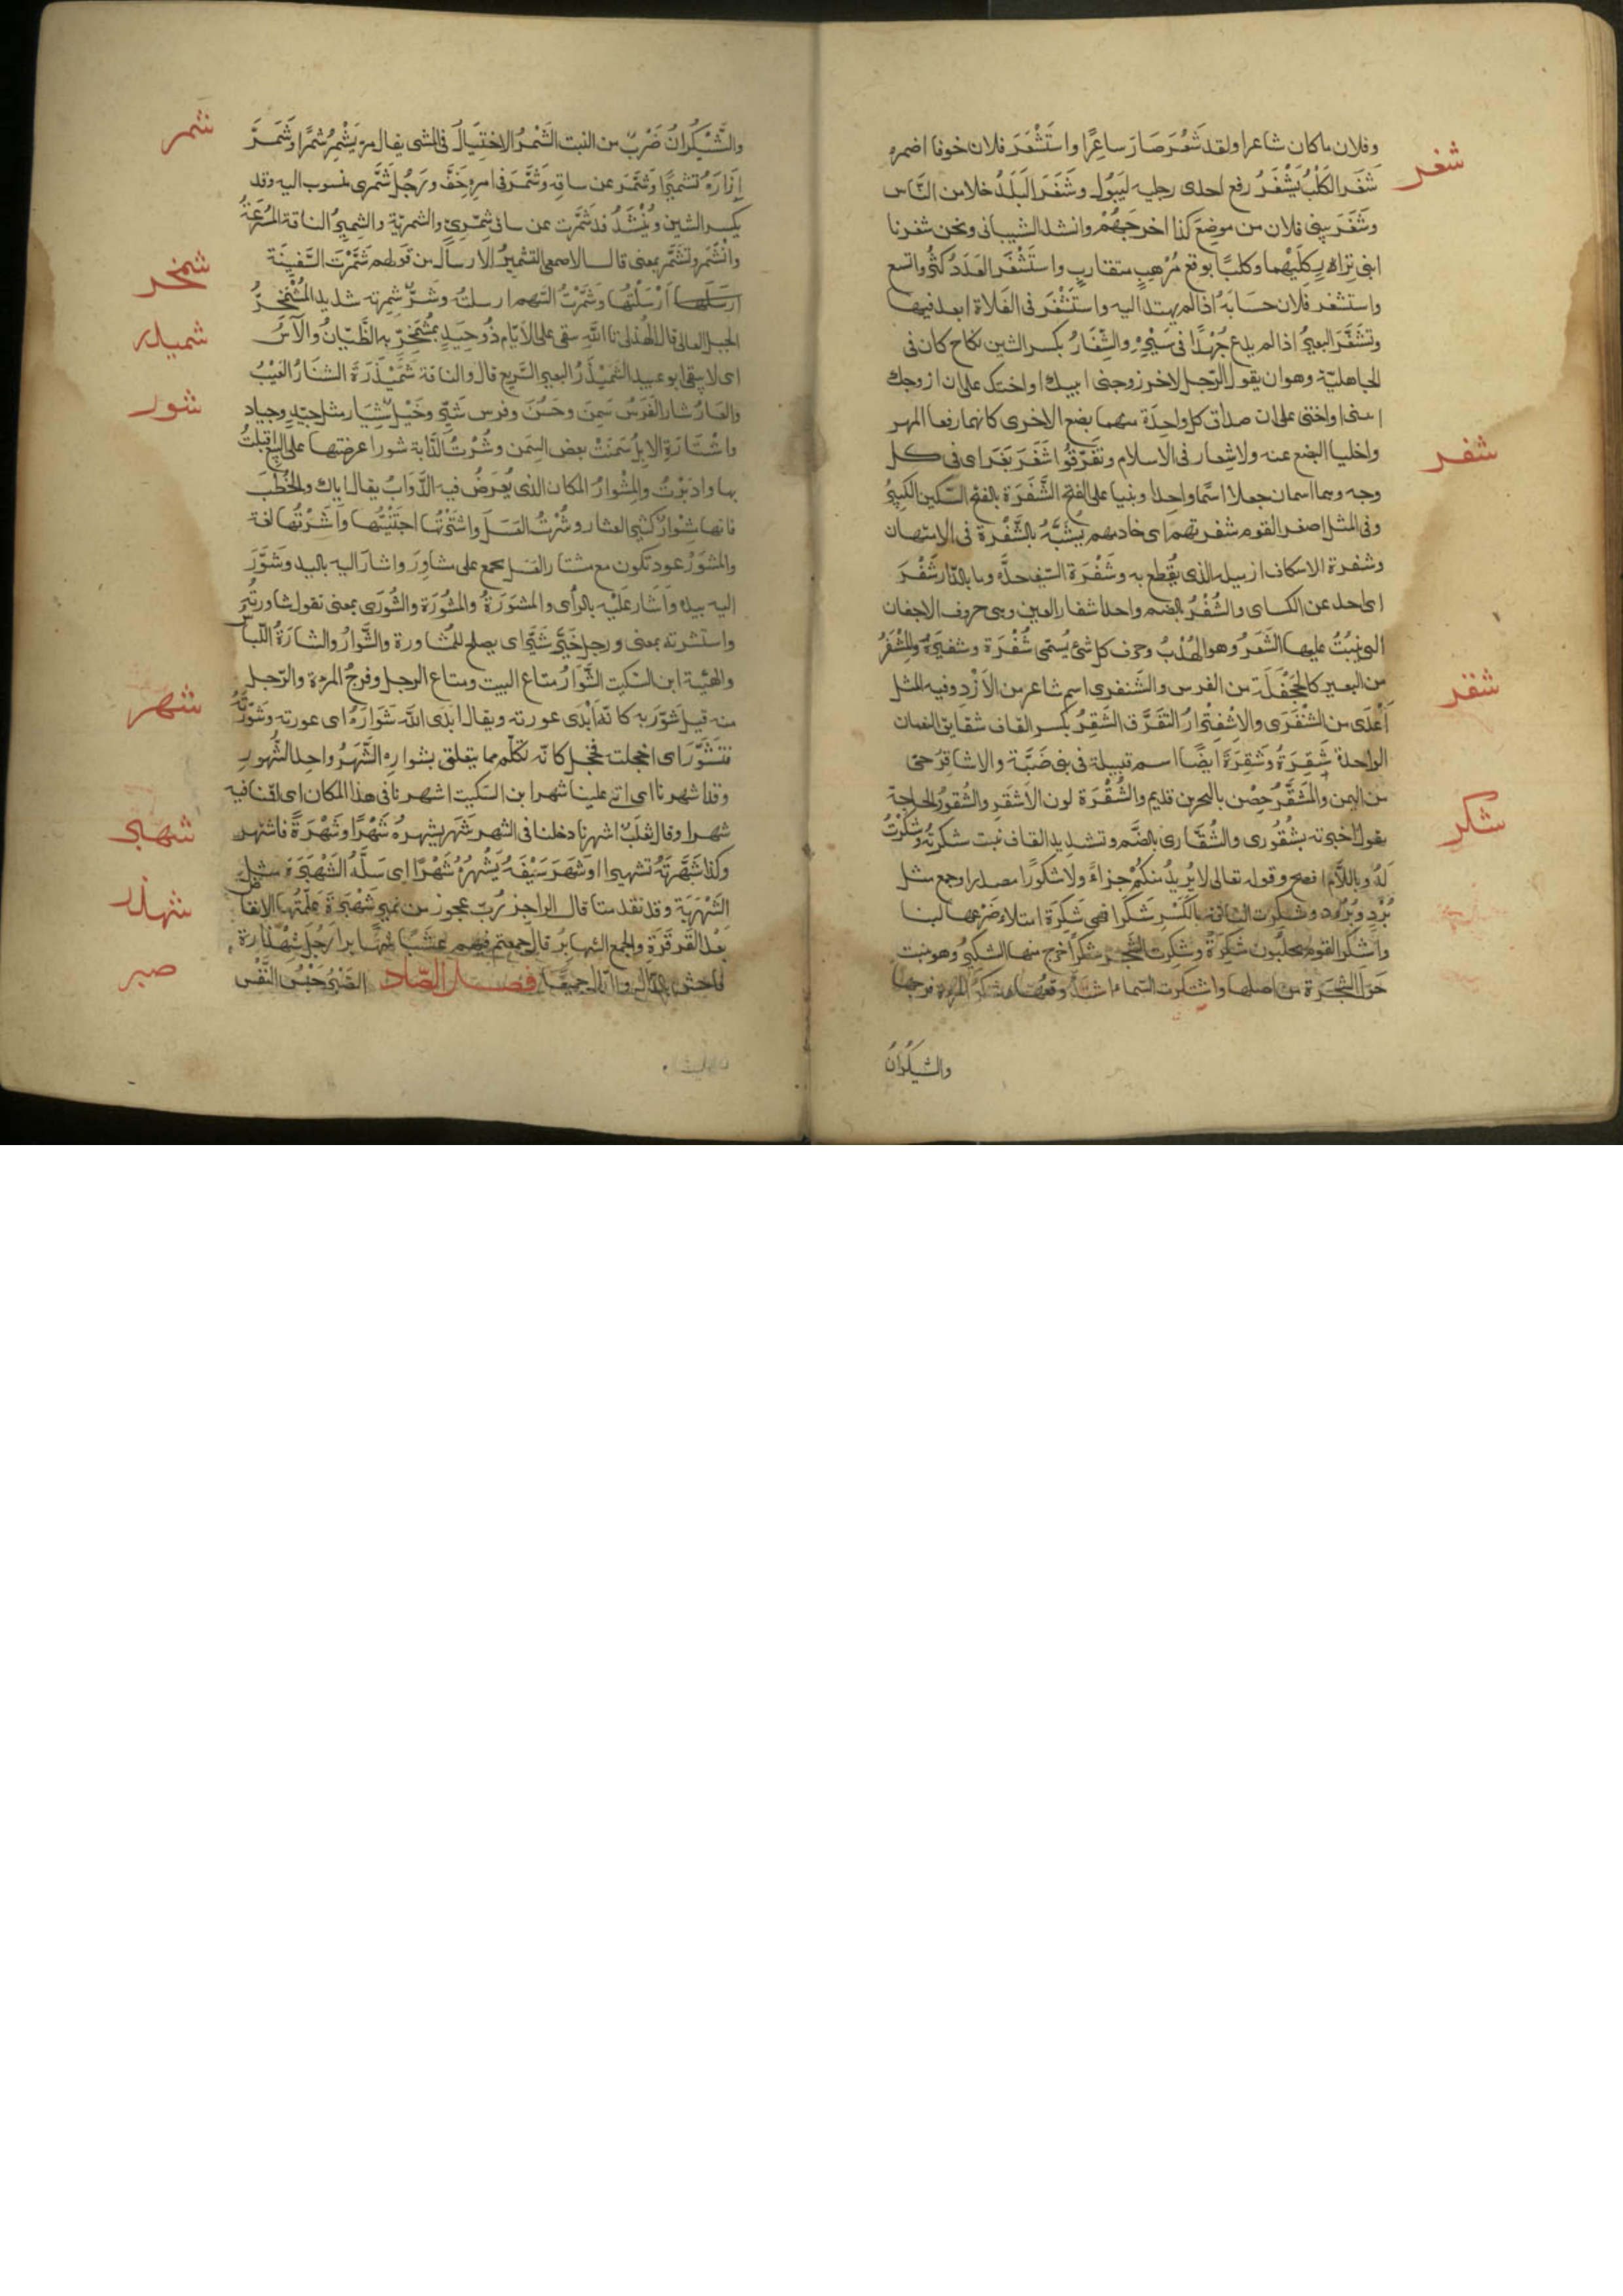 وفلان ماكان شاعرا ولقد شَعُرَ صَارَ شاعِرًا واستَشْعَرَ فلان خوفا اضمره
شغر
شَغَر الكَلْبُ يَشْغَرُ رفع احدى رجليه ليَبُول وشَغَرَ البَلَدُ خلا من النَّاس
وشَغَرَ بنى فلان من موضِعَ كَذا اخرجَهُمْ وانشد الشيبانى ونحن شغرنا
ابنى نِزاه كِلَيْهُما وكلبًا بوقع مُرْهِبٍ متقاربٍ واستَشْغَر العَدَدُ كثُر واتسع
واستشغر فلان حسَابَهُ اذا لم يهتد اليه واستَشْغَرَ فى الفَلاة ابعد فيها
وتشَغَّرَ البعيرُ اذا لم يدع جُهْدًا فى سَيْرِهِ والشِّغَارُ بكسر الشين نكاح كان فى
الجاهليّة وهو ان يقول الرّجل لاخر زوجنى ابنتك او اختك على ان ازوجك
ابنتى او اختى على ان صداق كل واحِدَة منهما بضع الاخرى كانهما رفعا المهر
واخليا البضع عنه ولا شِغار فى الاسلام وتفَرَّقُوا شَغَرَ بَغَر اى فى كل
شفر
وجه وهما اسمان جعلا اسمًا واحِدا وبنيا على الفتح الشَّفرَة بالفتح السّكين الكبيرُ
وفى المثل اصغر القوم شفرتهم اى خادمهم يُشَبَّهُ بالشَّفْرة فى الامتهان
وشفرة الاسكاف ازميله الذى يقُطع به وشَفْرَة السّيف حدُّه وما بالدّار شَفْرٌ
اى احد عن الكساى والشُفْرُ بالضم واحد اشفار العين وهى حروف الاجفان
التى ينبُتُ عليها الشَعَرُ وهو الهُدْبُ وحرف كل شئ يُسمّى شُفْرَة وشفيرُهُ والمِشْفَرُ
من البعير كالجَحْفَلَة من الفرس والشَنفرى اسم شاعر من الأَزْدِ وفيه المثل
شقر
أَعْدَى من الشَنْفَرَى والاشفِتْرارُ التَفرّق الشَقِرُ بكسر القاف شقايق النعمان
الواحدة شَقِرَةٌ وشَقِرَة ايضًا اسم قبيلة فى بنى ضَبَّة والاشاقِرُ حىّ
من اليمن والمُشَقَّرُ حِصْن بالبحرين قديم والشُقْرَة لون الأَشقَرِ والشُقورُ الحاجة
شكر
يقول اخبرته بشُقُورى والشُقَّارى بالضَّم وتشديد القاف نبت شكرتُهُ وشكَرْتُ
لَهُ وباللاَّم افصح وقوله تعالى لا نُريدُ منكُمْ جزاءً ولا شكورًا مصدرا وجمع مثل
بُرْدٍ وبُرُود وشكِرت الناقة بالكَسْرِ شَكَرا فهى شَكِرَة امتلاء ضَرْعها لبنا
واشكرَ القوم يحلبُون شَكِرَةً وشكِرت الشَّجر شَكرًا خرج منها الشكيرُ وهو ينبت
حَوْل الشَجَرة من اصلها واشتكرت السَّماء اشتدّ وقعُها شَكْرُ المرءة فرجها
والشَيْكَرانُ
شمر
والشَّيْكَرانُ ضَرْبٌ من النبت الشَمْرُ الاختِيَالُ فى المشى يقال مرّ يَشْمِرُ شَمْرًا وشَمَّرَ
إزَارَهُ تشميرًا وشَمَّرَ عن ساقِهِ وشَمَّرَ فى امرِهِ خَفَّ ورَجُل شَمَّرى منسوب اليه وقد
يكسر الشين ويُنْشَدُ قد شَمَّرت عن ساق شِمّرىّ والشمريّة والشِميرُ الناقة المُسْرِعَةُ
وانْشَمَر وتشَمَّر بمعنى قال الاصمعى التشميرُ الارسالُ من قولهم شَمَّرْتُ السَّفِينَة
شمخر
ارسَلتها أرْسَلْتُهَا وشَمَّرْتُ السّهم ارسلتُهُ وشَرٌّ شِمِرّته شديد المُشْمَخِرُّ
شميذر
الجبل العالى قال الهذلى تَا الله يبقى على الأيّام ذُو حِيَدٍ بمُشْمَخِرٍّ بهِ الظَّيّانُ والآسُ
اى لا يبقى ابو عبيد الشَمَيْذَرُ البعير السَّريع قال والناقة شَمَيْذَرَة الشنَارُ العَيْبُ
شور
والعَارُ شار الفَرَسُ سَمِنَ وحَسُنَ وفرس شَيّر وخَيْلٌ شِيَار مثل جيّدٍ وجياد
واشْتَارَةِ الابلُ سَمِنَتْ بعض السِمَن وشُرْتُ الدَّابة شورا عرضتها على البَيْع اقبلتُ
بها وادبَرْتُ والمِشْوارُ المكان الذى يُعرَضُ فيه الدَّوابُّ يقال اياك والخُطَبَ
فانها مِشْوارٌ كثير العثار وشُرْتُ العَسَلَ واشتَرْتُها اجتَنَيْتُها وأشَرْتُها لغة
والمشوَرُ عود تكون مع مشتار العَسل يجمع على مشاوِرَ واشار اليه باليد وشَوَّرَ
اليه بيده وأشار عَلَيْه بالرأى والمشوَرَةُ والمشُورَة والشُورَى بمعنى تقول شاورتُهُ
واستشرته بمعنى ورجل خَيّر شَيّر اى يصلح للمُشاورة والشَّوارُ والشارَةُ اللّباسُ
والهَيْئة ابن السّكيت الشَّوَارُ متاع البيت ومتاع الرجل وفرجُ المرءة والرّجل
شهر
منه قيل شَوَّرَ به كانّه أبْدَى عورته ويقال أبْدَى الله شَوَارَهُ اى عورته وشَوَّرْتُهُ
فتَشَوَّرَ اى اخجلت فخجل كانّه تكلّم مما يتعلق بشوارِه الشَّهْرُ واحِد الشُهورِ
وقد اشهرنا اى اتى علينا شهرا ابن السّكيت اشهرنا فى هذا المكان اى اقمنا فيه
شهبر
شهرا وقال ثعلبٌ اشهرنا دخلنا فى الشهر شَهَر يشهرهُ شَهْرًا وشُهْرَةً فاشتهر
وكذا شَهَّرتُهُ تشهيرا او شَهَرَ سَيْفَهُ يَشْهَرُهُ شَهْرًا اى سَلَّهُ الشَهْبَرَة مثل
شهذر
الشَهْرَبَة وقد تقدمتا قال الراجز رُبّ عجوز من نمير شَهْبَرَة عَلّمتُهَا الانقاض
بَعْدَ القَرْقَرَةِ والجمع الشهابرُ قال جمعتم
صبر
فاحش بالدّال والرّاء جميعًا فصل الصّاد الصَّبْرُ حَبْس النَّفْس